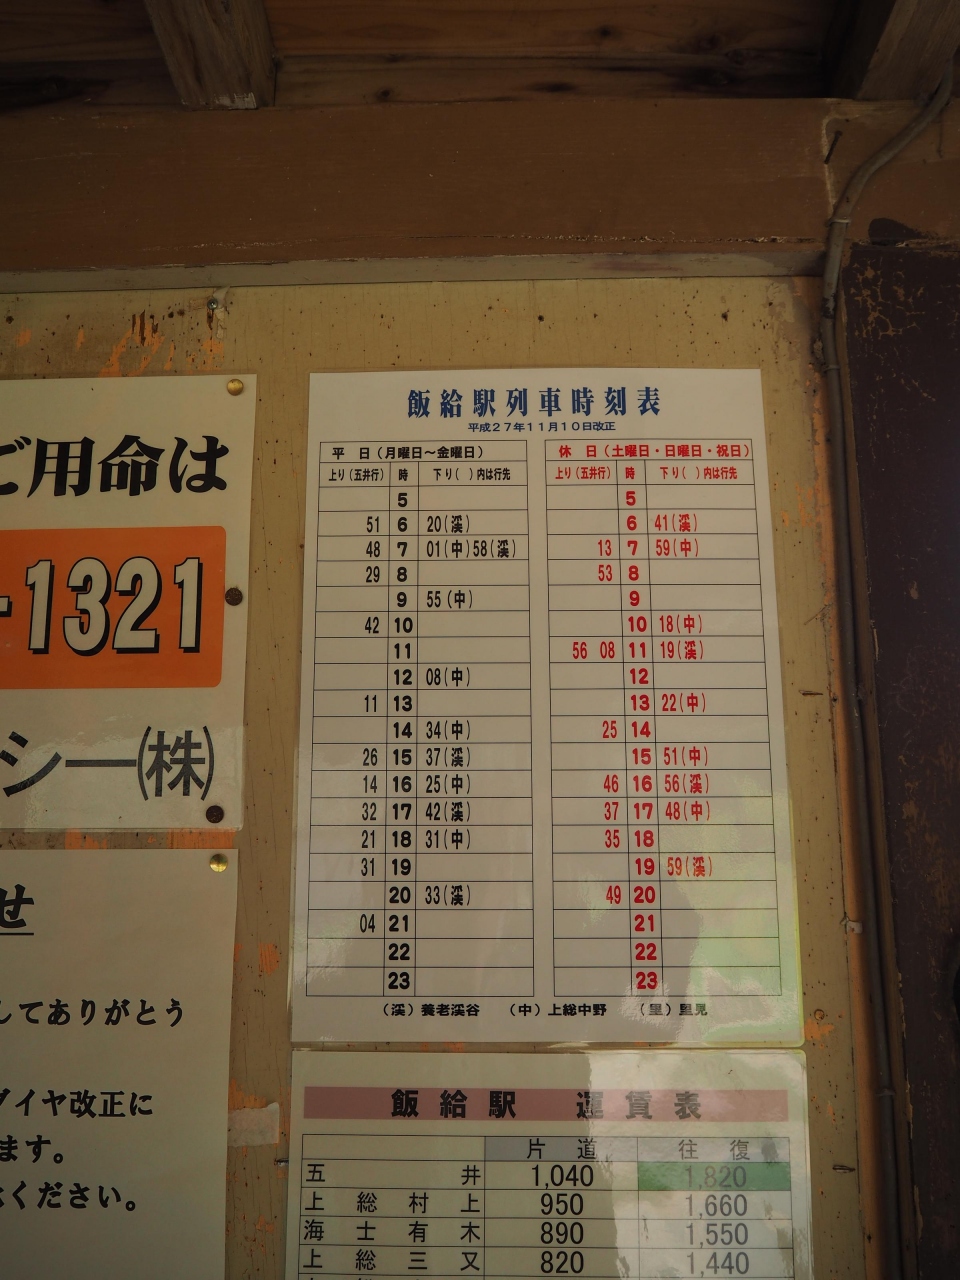 ご用命は
-1321
シー㈱
せ
してありがとう
ダイヤ改正に
ます。
ください。
飯給駅列車時刻表
平成27年11月10日改正
平 日(月曜日～金曜日)
上り(五井行) 時 下り( )内は行先
5
51 6 20(渓)
48 7 01(中)58(渓)
29 8
9 55(中)
42 10
11
12 08(中)
11 13
14 34(中)
26 15 37(渓)
14 16 25(中)
32 17 42(渓)
21 18 31(中)
31 19
20 33(渓)
04 21
22
23
休 日(土曜日・日曜日・祝日)
上り(五井行) 時 下り( )内は行先
5
6 41(渓)
13 7 59(中)
53 8
9
10 18(中)
56 08 11 19(渓)
12
13 22(中)
25 14
15 51(中)
46 16 56(渓)
37 17 48(中)
35 18
19 59(渓)
49 20
21
22
23
(渓)養老渓谷 (中)上総中野 (里)里見
飯給駅 運賃表
片道 往復
五井 1,040 1,820
上総村上 950 1,660
海士有木 890 1,550
上総三又 820 1,440